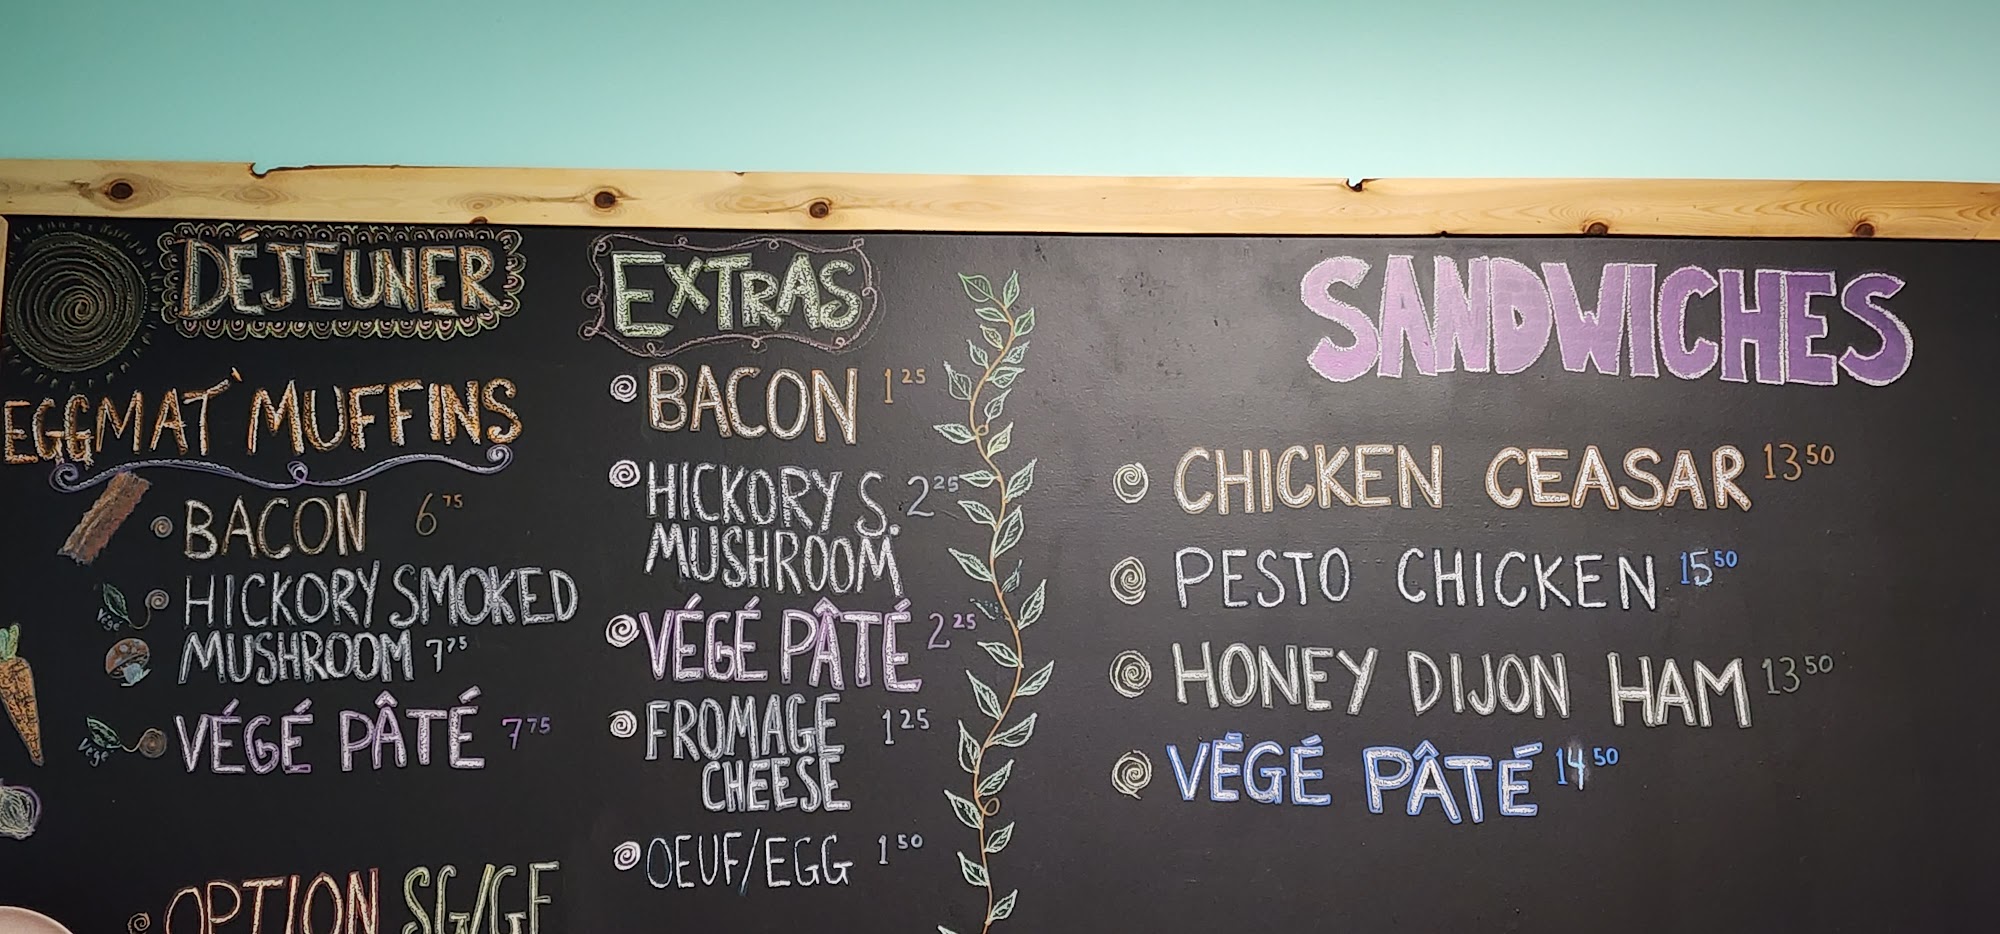 DÉJEUNER
EGGMAT' MUFFINS
BACON 6 75
HICKORY SMOKED
Végé
MUSHROOM 7 75
VÉGÉ PÂTÉ 7 75
Végé
OPTION SG/GF
EXTRAS
BACON 1 25
HICKORY S. 2 25
MUSHROOM
VÉGÉ PÂTÉ 2 25
FROMAGE 1 25
CHEESE
OEUF/EGG 1 50
SANDWICHES
CHICKEN CEASAR 13 50
PESTO CHICKEN 15 50
HONEY DIJON HAM 13 50
VÉGÉ PÂTÉ 14 50